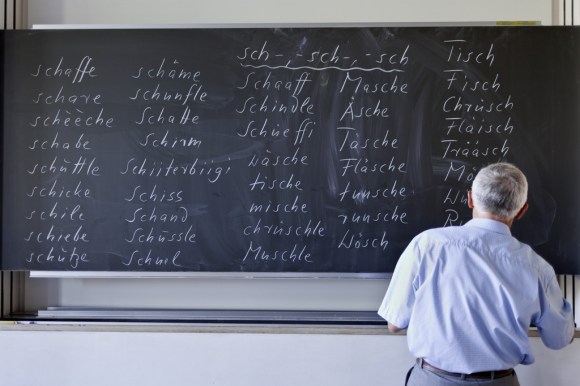 schaffe
schare
schëeche
schabe
schüttle
schicke
schile
schiebe
schütze
schäme
schunfle
Schatte
Schirm
Schiiterbiigi
Schiss
Schand
Schüssle
sch-, -sch-, -sch
Schaaff
Schindle
wäsche
tische
mische
chrüschle
Muschle
Masche
Äsche
Täsche
Fläsche
tuusche
ruusche
Wösch
Tisch
Fisch
Chrüsch
Fläisch